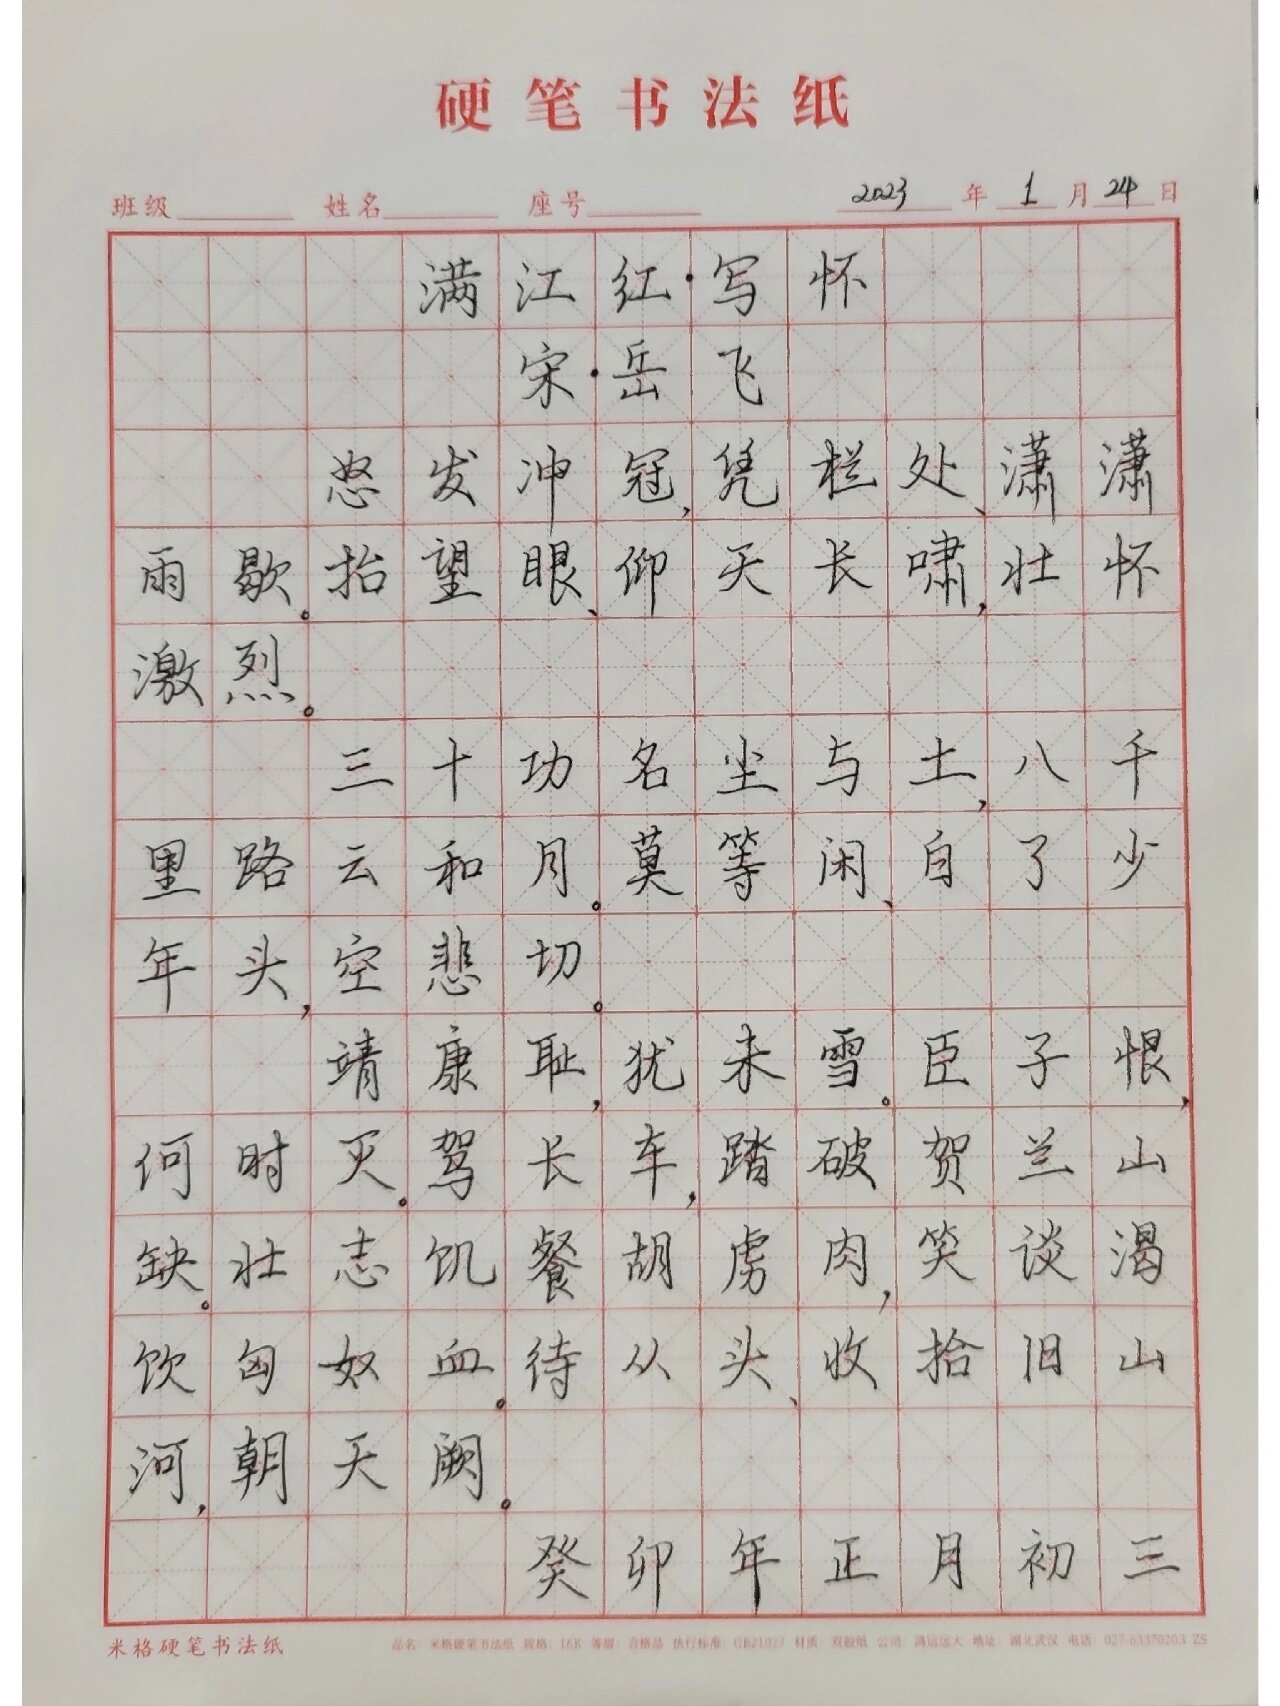 硬笔书法纸
班级 姓名 座号 2023 年 1 月 24 日
满江红·写怀
宋·岳飞
怒发冲冠,凭栏处、潇潇
雨歇。抬望眼、仰天长啸,壮怀
激烈。
三十功名尘与土,八千
里路云和月。莫等闲、白了少
年头,空悲切。
靖康耻,犹未雪。臣子恨,
何时灭。驾长车,踏破贺兰山
缺。壮志饥餐胡虏肉,笑谈渴
饮匈奴血。待从头、收拾旧山
河,朝天阙。
癸卯年正月初三
米格硬笔书法纸 品名: 米格硬笔书法纸 规格: 16K 等级: 合格品 执行标准: 材质: 双胶纸 公司: 鸿运远大 地址: 湖北武汉 电话: 027-63370203 ZS